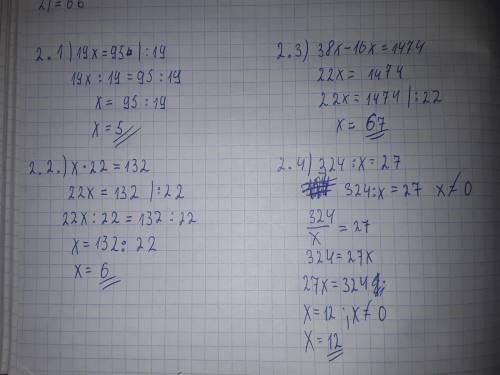 2) = 66
2.1) 19x = 95 | :19
19x : 19 = 95 : 19
x = 95 : 19
x = 5
2.2.) x · 22 = 132
22x = 132 | :22
22x : 22 = 132 : 22
x = 132 : 22
x = 6
2.3) 38x - 16x = 1474
22x = 1474
22x = 1474 | :22
x = 67
2.4) 324 : x = 27
324 : x = 27 x ≠ 0
324/x = 27
324 = 27x
27x = 324
x = 12 ; x ≠ 0
x = 12